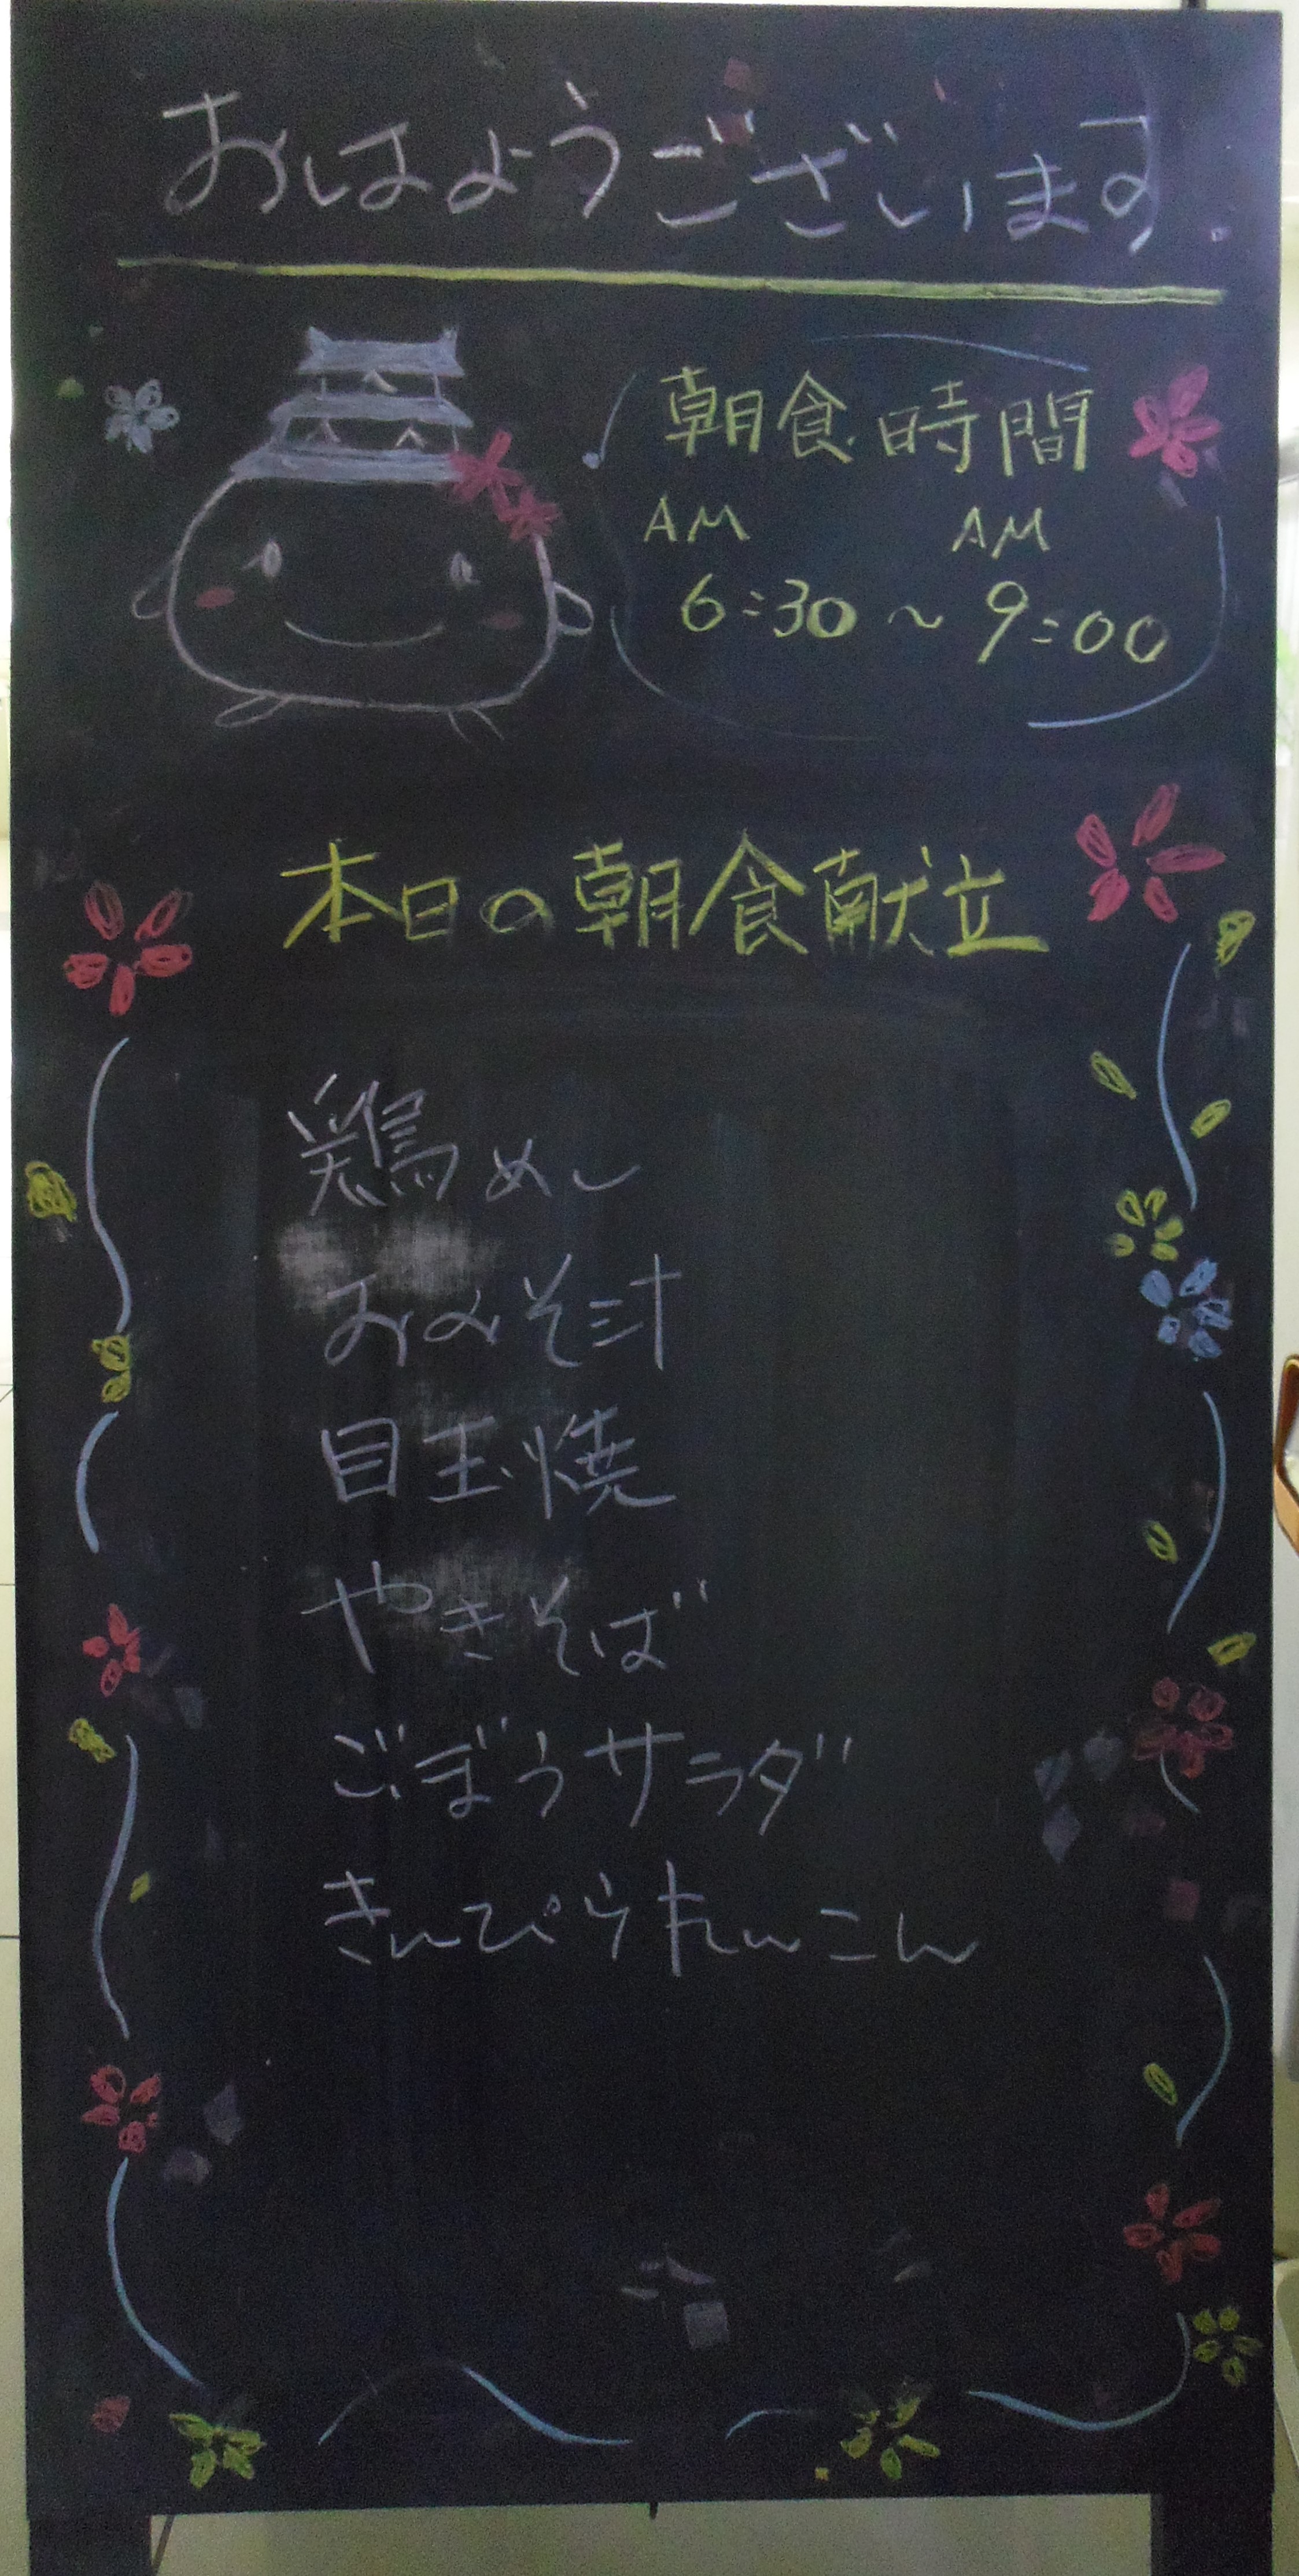 おはようございます.
朝食時間
AM AM
6:30~9:00
本日の朝食献立
鶏めし
おみそ汁
目玉焼
やきそば
ごぼうサラダ
きんぴられんこん